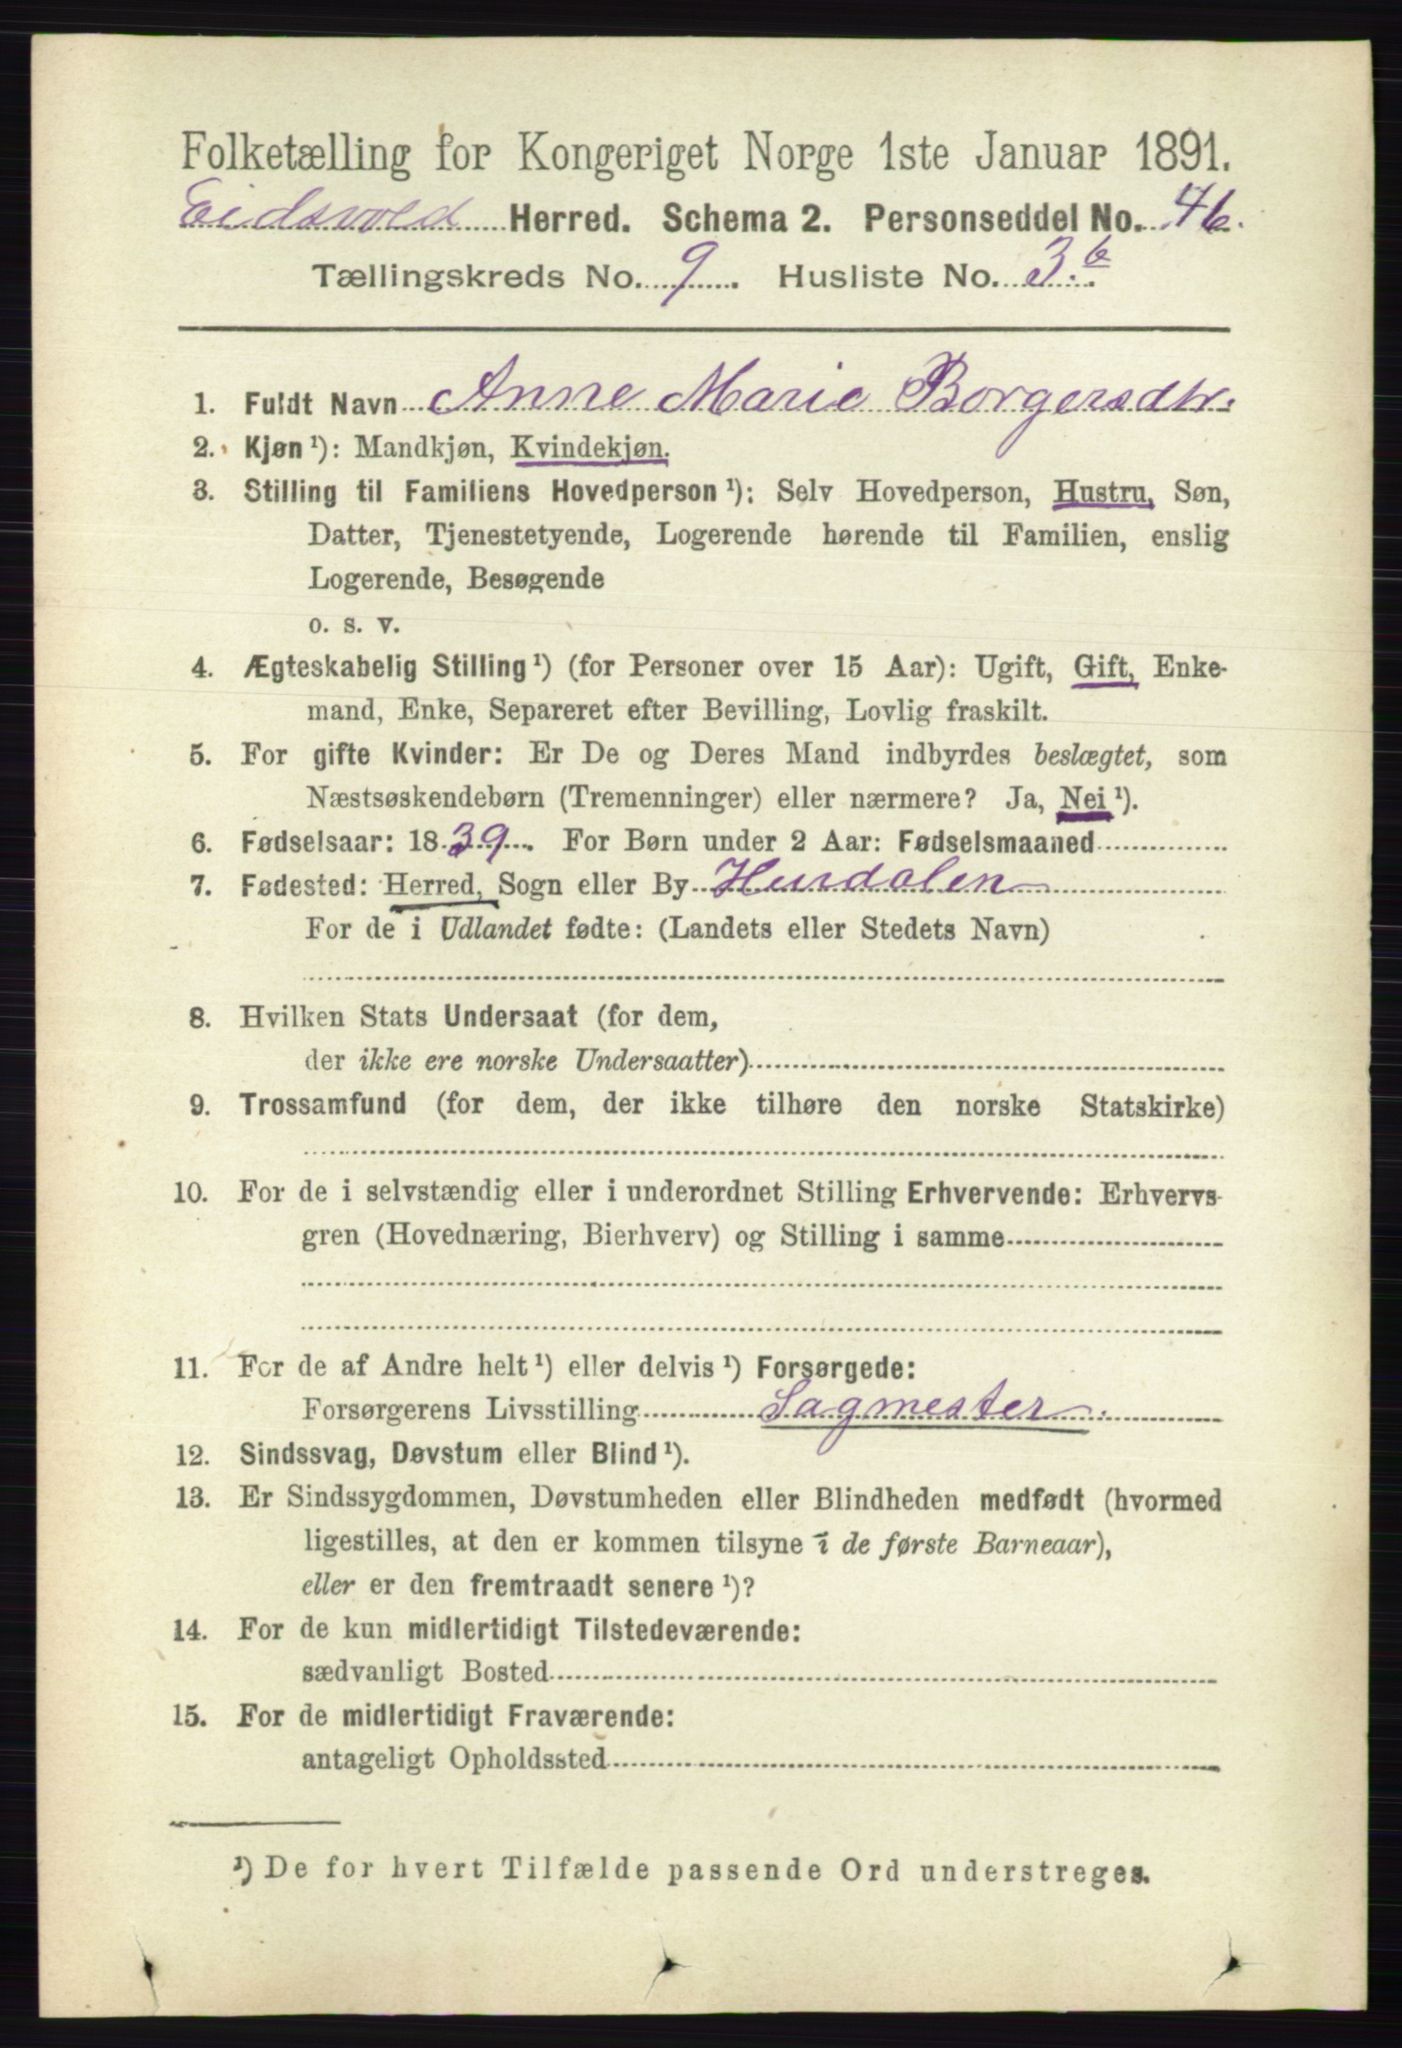 Folketælling for Kongeriget Norge 1ste Januar 1891.
Eidsvold Herred. Schema 2. Personseddel No. 46.
Tællingskreds No. 9. Husliste No. 3.b
1. Fuldt Navn Anne Marie Borgersdtr.
2. Kjøn¹): Mandkjøn, Kvindekjøn.
3. Stilling til Familiens Hovedperson¹): Selv Hovedperson, Hustru, Søn,
Datter, Tjenestetyende, Logerende hørende til Familien, enslig
Logerende, Besøgende
o. s. v.
4. Ægteskabelig Stilling¹) (for Personer over 15 Aar): Ugift, Gift, Enke-
mand, Enke, Separeret efter Bevilling, Lovlig fraskilt.
5. For gifte Kvinder: Er De og Deres Mand indbyrdes beslægtet, som
Næstsøskendebørn (Tremenninger) eller nærmere? Ja, Nei¹).
6. Fødselsaar: 1839. For Børn under 2 Aar: Fødselsmaaned
7. Fødested: Herred, Sogn eller By Hurdalen
For de i Udlandet fødte: (Landets eller Stedets Navn)
8. Hvilken Stats Undersaat (for dem,
der ikke ere norske Undersaatter)
9. Trossamfund (for dem, der ikke tilhøre den norske Statskirke)
10. For de i selvstændig eller i underordnet Stilling Erhvervende: Erhvervs-
gren (Hovednæring, Bierhverv) og Stilling i samme
11. For de af Andre helt¹) eller delvis¹) Forsørgede:
Forsørgerens Livsstilling Sagmester
12. Sindssvag, Døvstum eller Blind¹).
13. Er Sindssygdommen, Døvstumheden eller Blindheden medfødt (hvormed
ligestilles, at den er kommen tilsyne i de første Barneaar),
eller er den fremtraadt senere¹)?
14. For de kun midlertidigt Tilstedeværende:
sædvanligt Bosted
15. For de midlertidigt Fraværende:
antageligt Opholdssted
¹) De for hvert Tilfælde passende Ord understreges.